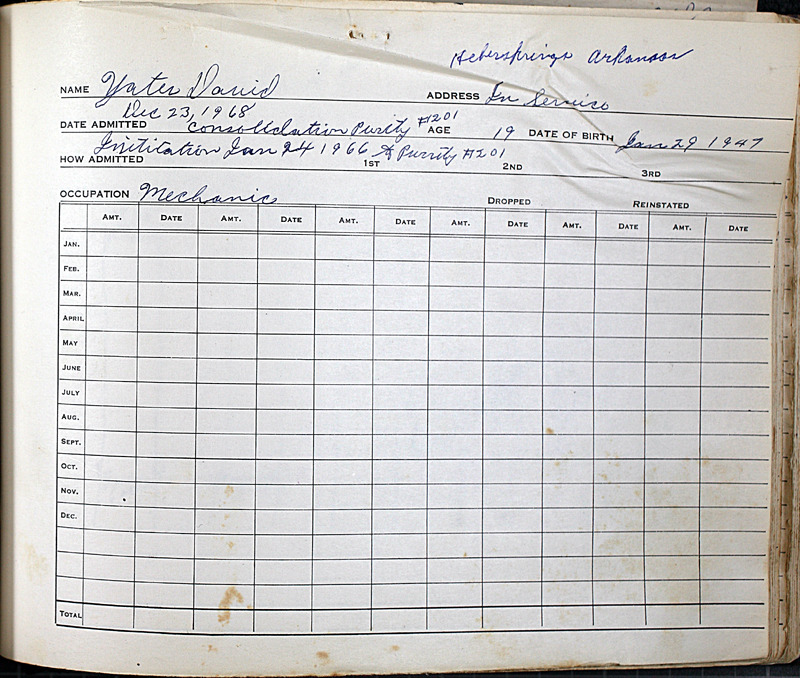 Hebersprings Arkansas
NAME Yates David ADDRESS In Service
Dec 23, 1968
DATE ADMITTED Consolidation Purity #201 AGE 19 DATE OF BIRTH Jan 29 1947
Initiation Jan 24 1966 Purity #201
HOW ADMITTED 1ST 2ND 3RD
OCCUPATION Mechanic DROPPED REINSTATED
AMT. DATE AMT. DATE AMT. DATE AMT. DATE AMT. DATE AMT. DATE
JAN.
FEB.
MAR.
APRIL
MAY
JUNE
JULY
AUG.
SEPT.
OCT.
NOV.
DEC.
TOTAL